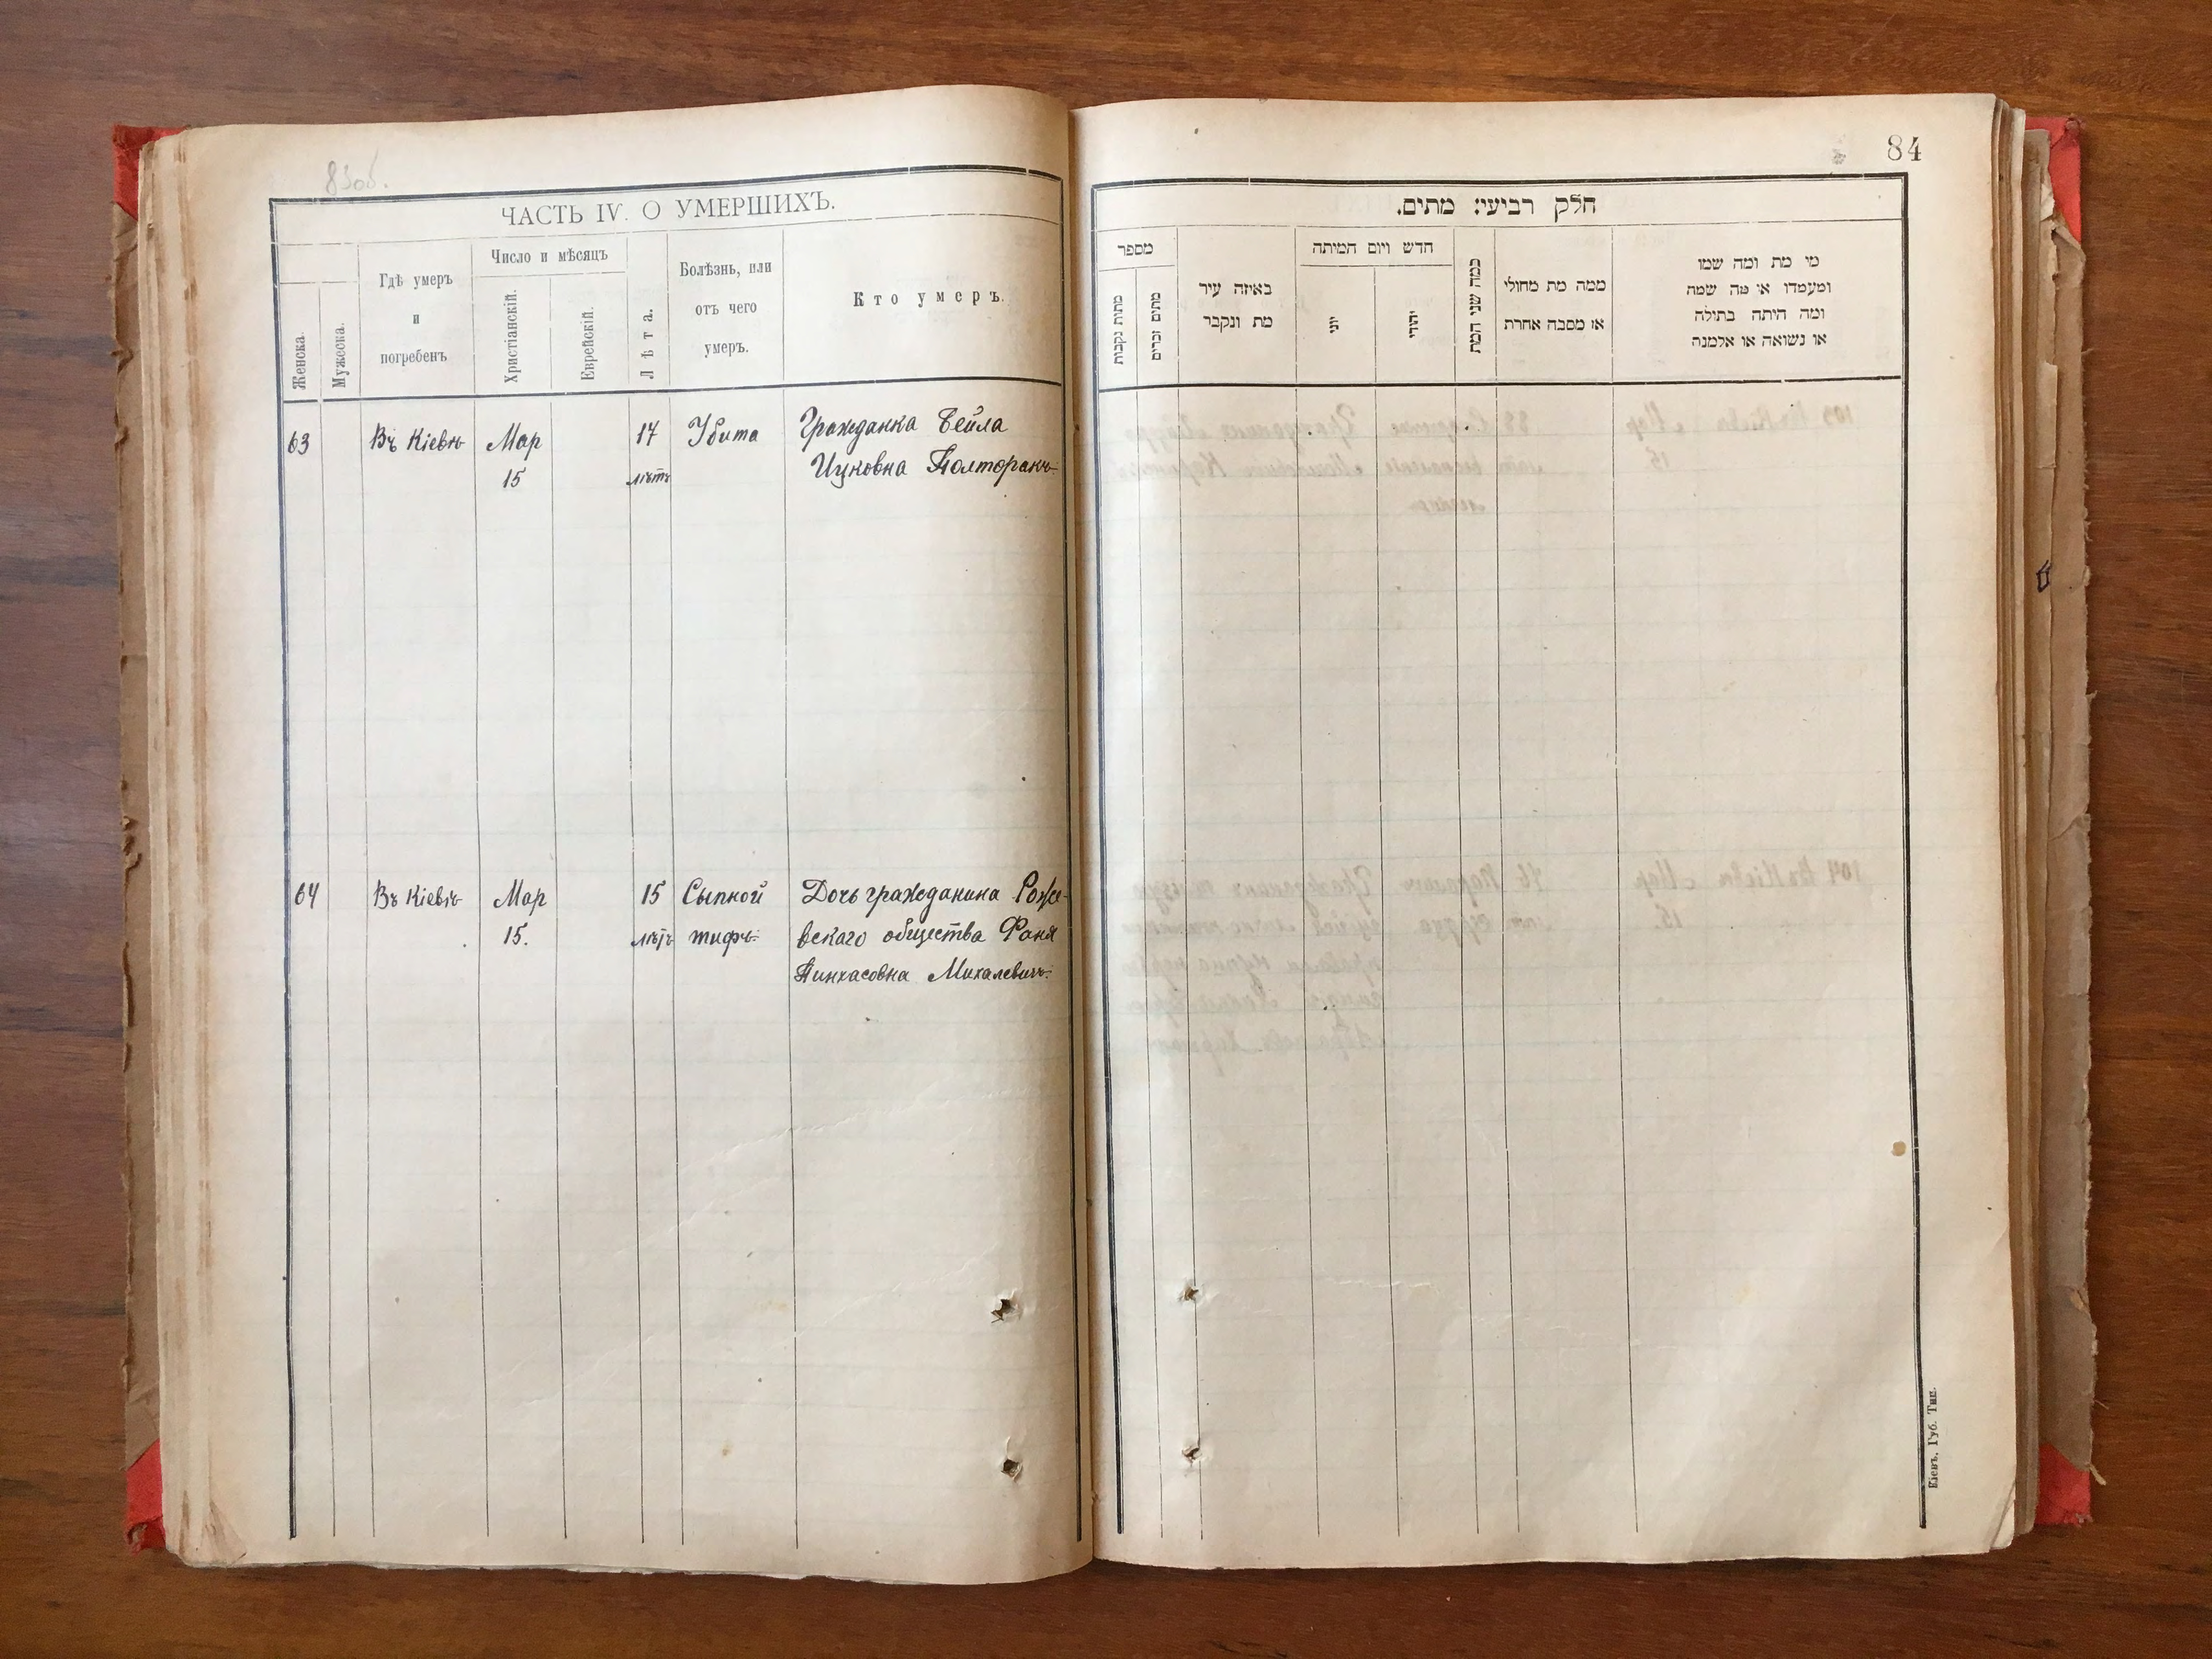 83об.
ЧАСТЬ IV. О УМЕРШИХЪ.
Женска.
Мужеска.
Гдѣ умеръ
и
погребенъ
Число и мѣсяцъ
Христіанскій.
Еврейскій.
Лѣта.
Болѣзнь, или
отъ чего
умеръ.
Кто умеръ.
63 Въ Кіевѣ Мар 17 Убита Гражданка Бейла
15 лѣтъ Ицковна Полторакъ
64 Въ Кіевѣ Мар 15 Сыпной Дочь гражданина Роже-
15. лѣтъ тифъ вскаго общества Фаня
Пинхасовна Михалевичъ
84
חלק רביעי: מתים.
מספר
מתות נקבות
מתים זכרים
באיזה עיר
מת ונקבר
חדש ויום המיתה
יוני
יהודי
כמה שני המת
ממה מת מחולי
או מסבה אחרת
מי מת ומה שמו
ומעמדו או מה שמה
ומה היתה בתולה
או נשואה או אלמנה
Кіевъ, Губ. Тип.